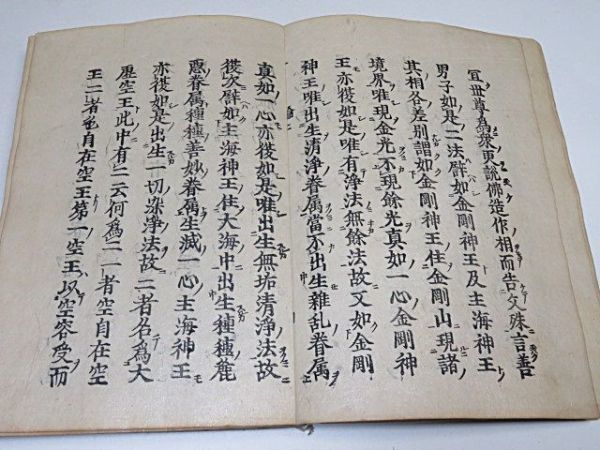 宜世尊為眾更說佛造作相而告文殊言善
男子如是二法譬如金剛神王及主海神王
其相各差別謂如金剛神王住金剛山現諸
境界唯現金光不現餘光真如一心金剛神
王亦復如是唯有淨法無餘法故又如金剛
神王唯出生清淨眷属當不出生雜乱眷属
真如一心亦復如是唯出生無垢清淨法故
復次譬如主海神王住大海中出生種種麁
惡眷属種種善妙眷属生滅一心主海神王
亦復如是出生一切染淨法故二者名為大
虛空王此中有二云何為二一者空自在空
王二者色自在空王第一空王以空容受而